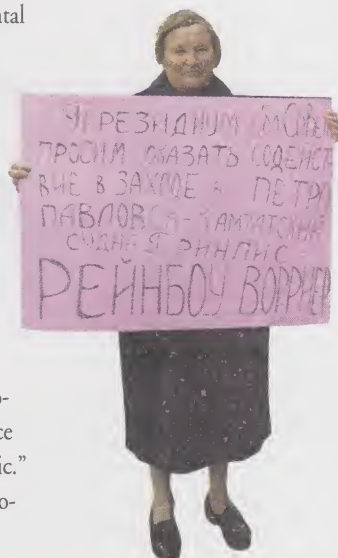 ntal
ПРОСИМ ОКАЗАТЬ СОДЕЙСТ
ВИЕ В ЗАХОДЕ В ПЕТРО
ПАВЛОВСК-КАМЧАТСКИЙ
СУДНА ГРИНПИС
РЕЙНБОУ ВОРРИЕР
o-
ce
ic.”
o-